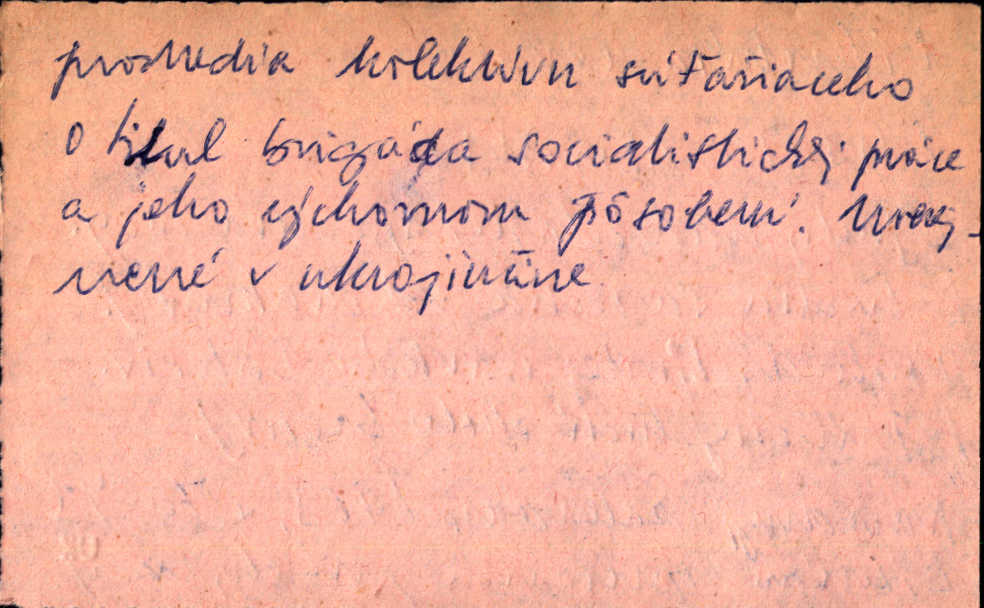 prostredia kolektívu súťažiaceho
o titul brigáda socialistickej práce
a jeho výchovnom pôsobení. Uverej-
nené v ukrajinčine